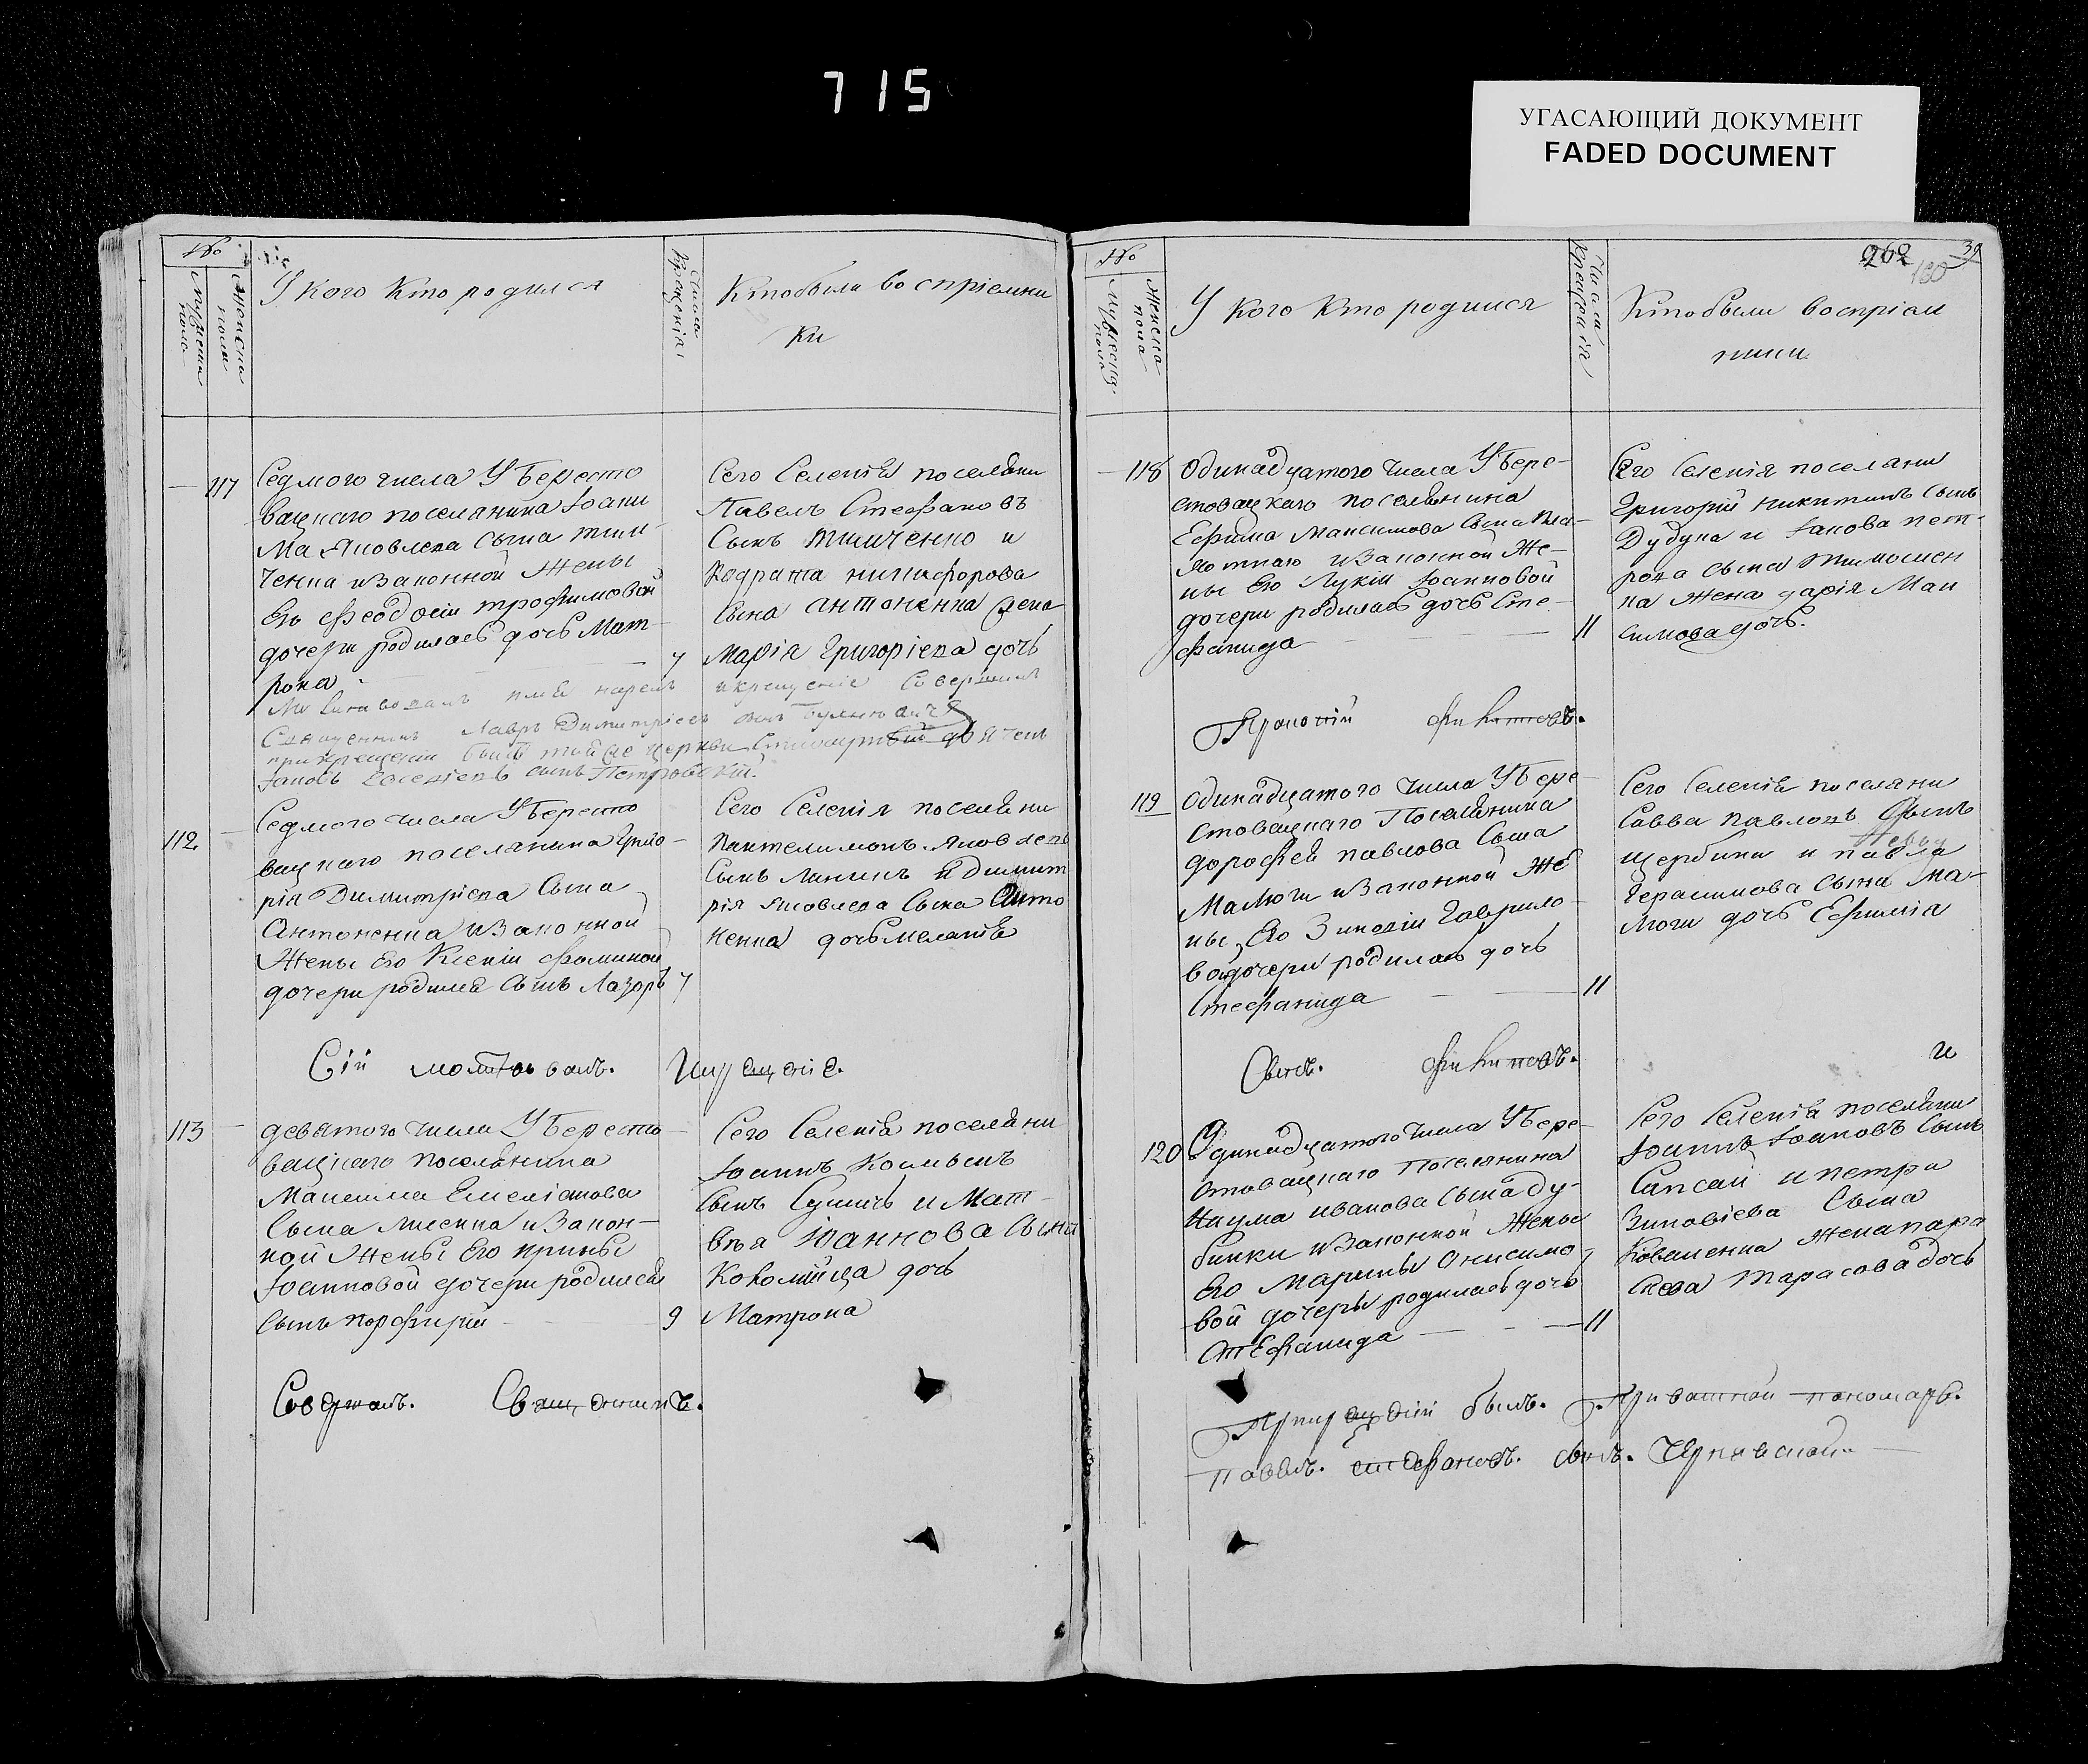 715
УГАСАЮЩИЙ ДОКУМЕНТ
FADED DOCUMENT
№
Мужеска пола
Женска пола
У кого кто родился
Число крещенія
Кто были воспріемни
ки
117
Седмого числа У Бересто
вацкаго поселянина Іоанн
Яковлева сына тим
ченка и Законной Жены
Его Феодосіи трофимовой
дочери родилась дочь Мат-
рона
7
Сего Селенія поселяни
Павелъ Стефановъ
Сынъ тимченко и
Кодрата никифорова
Сына антоненка жена
Марія Григоріева дочь
Молитвовалъ имя нарекъ и крещеніе Совершилъ
Священникъ Лавръ Димитріевъ сынъ
при крещеніи былъ той же церкви
Іаковъ сынъ Петровскій.
112
Седмого числа У Бересто
вацкаго поселянина Григо-
рія Димитріева Сына
Антоненка и Законной
Жены Его Ксеніи Фоминой
дочери родился Сынъ Лазоръ
7
Сего Селенія поселяни
Пантелимонъ Яковлевъ
Сынъ и димит
рія Яковлева Сына Анто
ненка дочь меланія
Сій молитвовалъ. И крещеніе.
113
девятого числа У Бересто
вацкаго поселянина
Емеліанова
Сына лисенка и Закон-
ной Жены Его ирины
Іоанновой дочери родился
Сынъ порфирій
9
Сего Селенія поселяни
Іоаннъ Косминъ
Сынъ и Мат-
вѣя Іаннова Сына
Коломійца дочь
Матрона
Священникъ.
262
39
180
№
Мужеска пола
Женска пола
У кого кто родился
Числа крещенія
Кто были воспріем
ники
118
Одинадцатого числа У Бере-
стовацкаго поселянина
Ефима Максимова Сына
и Законной Же-
ны Его Лукіи Іоанновой
дочери родилась дочь Сте-
фанида
11
Сего Селенія поселяни
Григорій Никитинъ Сынъ
Дудука и Іакова пет-
рова сына тимошен
ка жена дарія Мак
симова дочь.
119
Одинадцатого числа У Бере-
стовацкаго Поселянина
дорофея павлова Сына
Малюги и Законной Же
ны Его Зиновіи Гаврило-
вой дочери родилась дочь
Стефанида
11
Сего Селенія поселяни
Савва Павловъ Сынъ
щербина и павла
Герасимова Сына Ма-
люги дочь Ефимія
Сынъ.
и
120
Одинадцатого числа У Бере-
стовацкаго Поселянина
Наума иванова Сына ду-
бинки и Законной Жены
Его Марины Онисимо-
вой дочери родилась дочь
Стефанида
11
Сего Селенія поселяни
Іоаннъ Іоановъ Сынъ
Сапсай и петра
Зиновіева Сына
Коваленка жена пара
скева Тарасова дочь
При крещеніи былъ. Приватной пономарь.
павелъ. стефановъ. сынъ. Чернявской